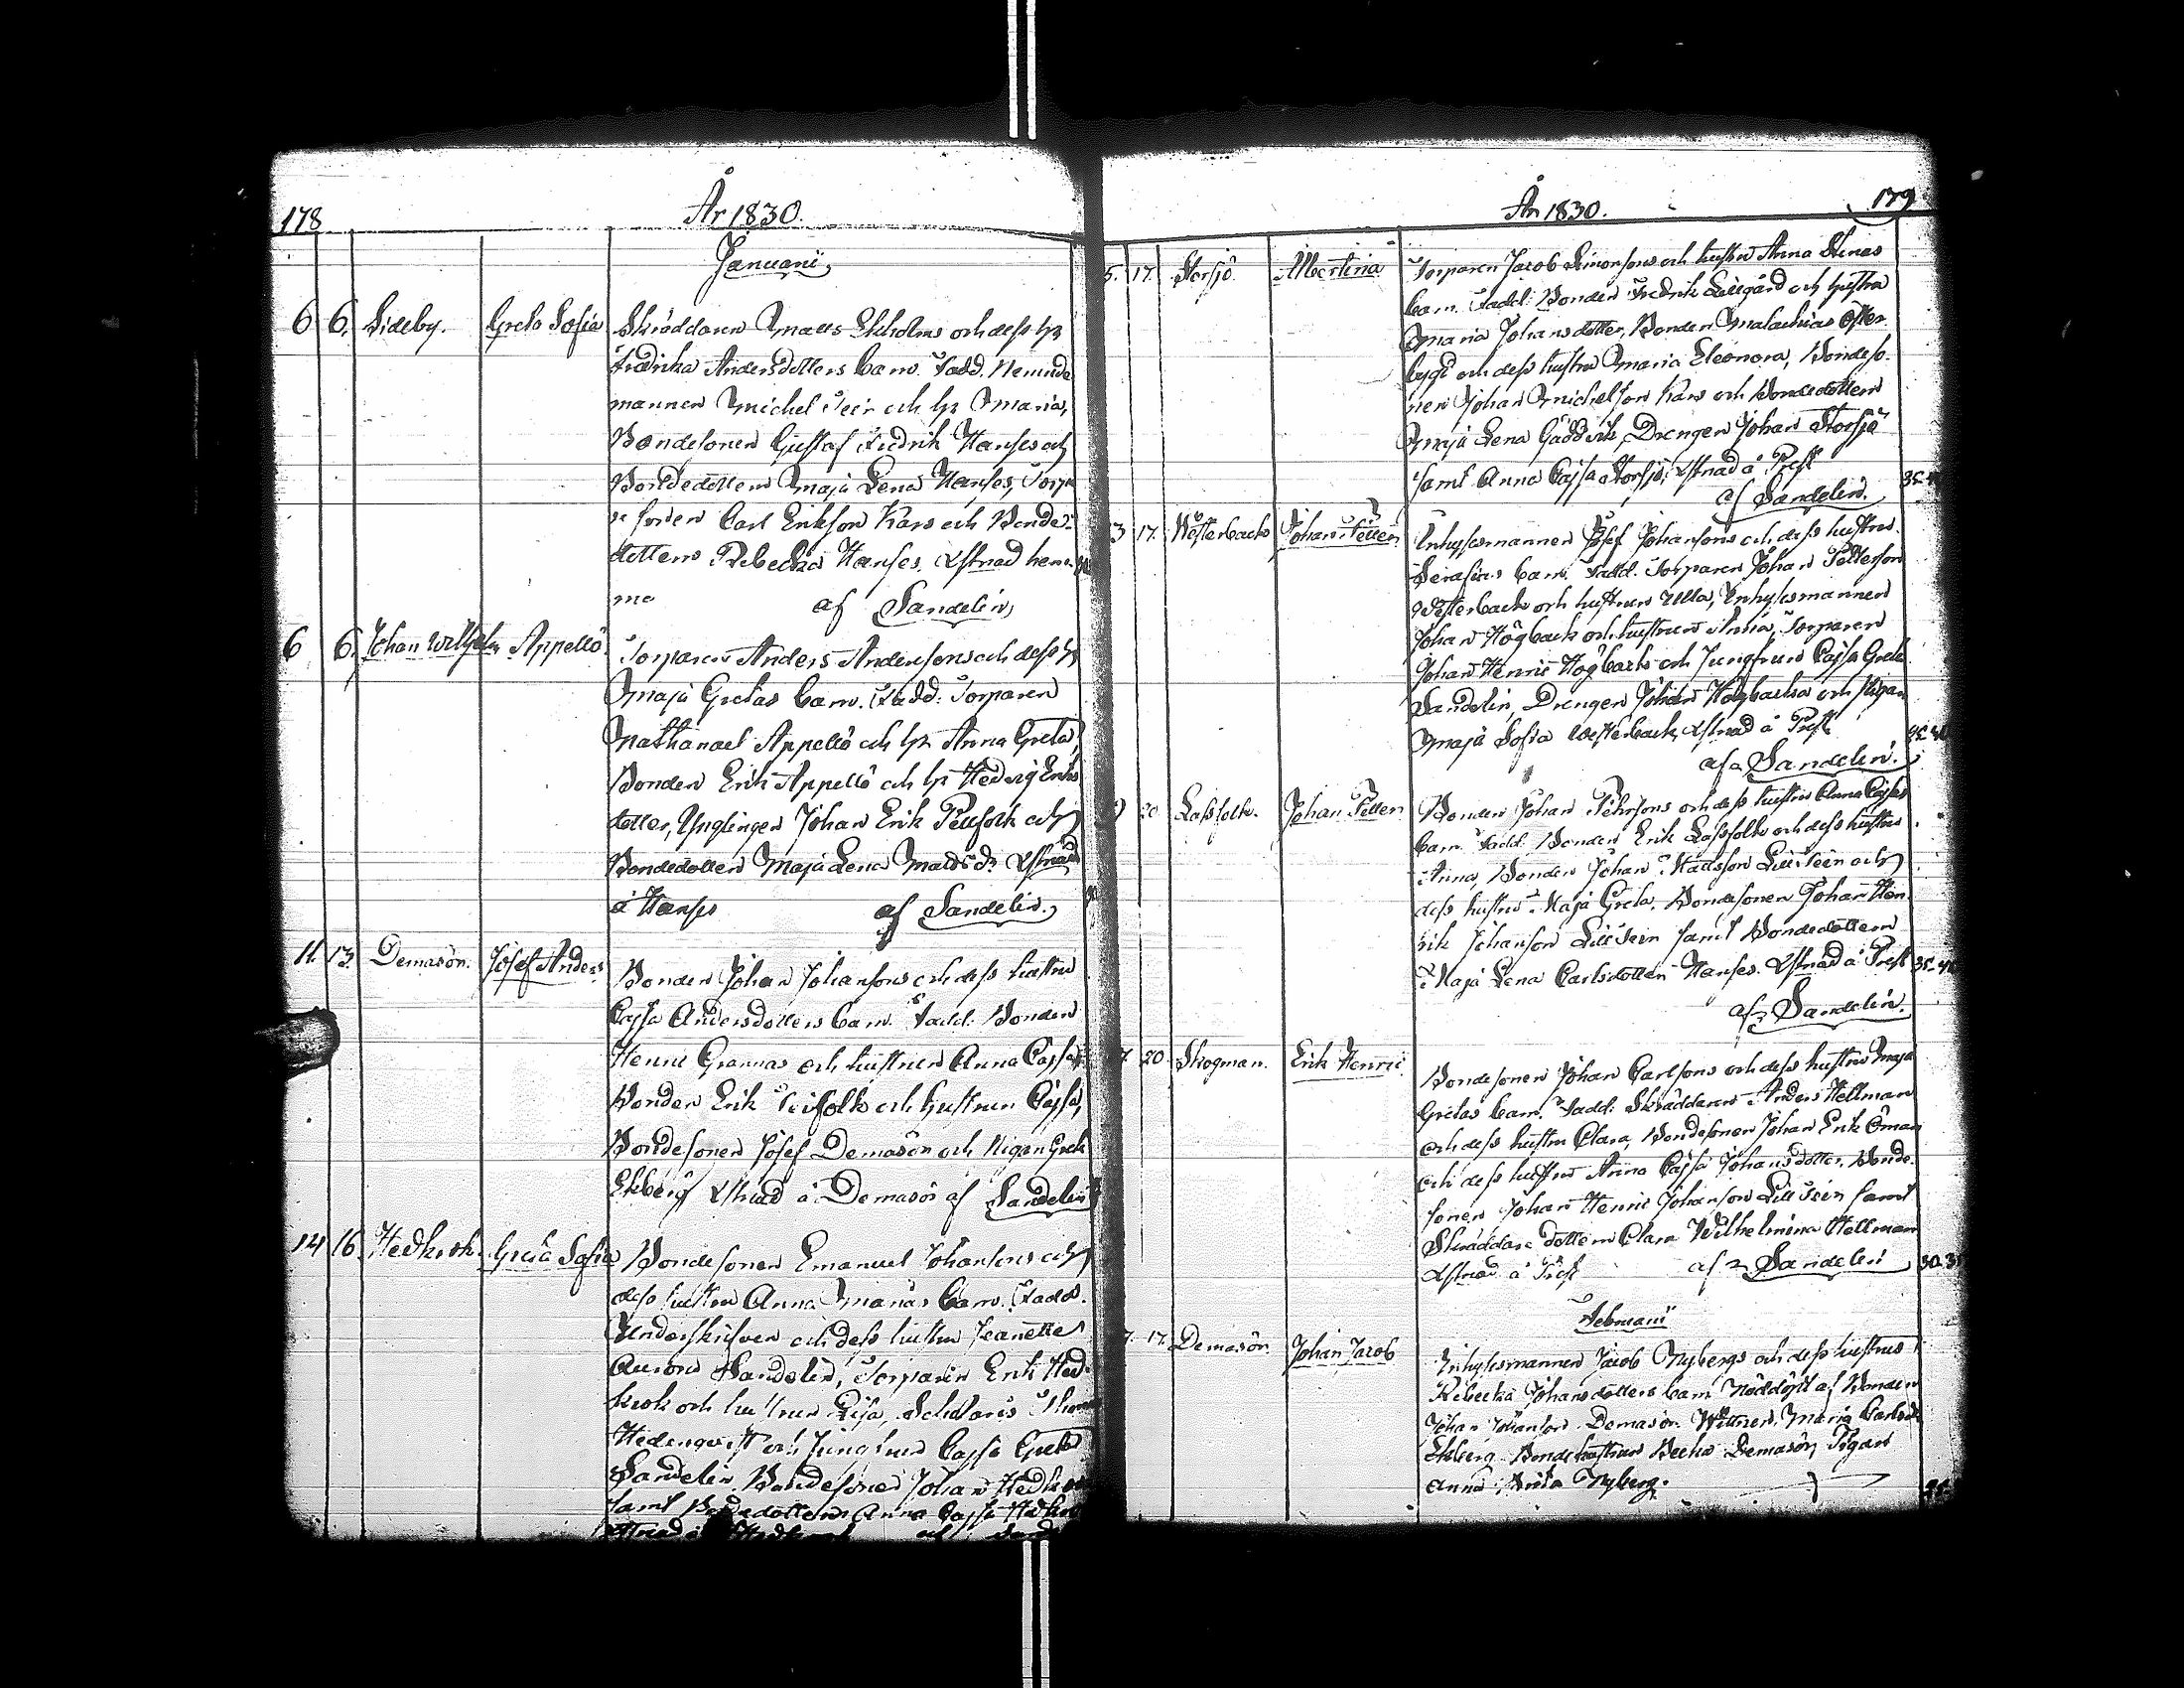 178
År 1830.
Januarii
6 6. Sideby. Greta Sofia Skräddaren Matts Ekholms och dess h:
Fredrika Andersdotters barn. Fadd. Nemnde
mannen Michel Teir och h: Maria,
Bondesonen Gustaf Fredrik Hanses och
Bondedottern Maja Lena Hanses, Torpa
re sonen Carl Erikson Kars och Bonde-
dottern Rebecka Hanses. Xstnad hem-
ma af Sandelin
6 6. Johan Wilhelm Appellö. Torparen Anders Andersons och dess h:
Maja Gretas barn. Fadd: Torparen
Nathanael Appellö och h: Anna Greta,
Bonden Erik Appellö och h: Hedvig Eriks
dotter, Ynglingen Johan Erik och
Bondedottern Maja Lena Mattsd:r Xstnad
å Hanses af Sandelin.
11. 13. Demasön. Josef Anders Bonden Johan Johansons och dess hustru
Cajsa Andersdotters barn. Fadd: Bonden
Henric Grannas och hustrun Anna Cajsa,
Bonden Erik Teifolk och hustrun Cajsa,
Bondesonen Josef Demasön och Pigan Greta
Ekberg Xstnad å Demasön af Sandelin
14 16. Hedkrok. Greta Sofia Bondesonen Emanuel Johansons och
dess hustru Anna Marias barn. Fadd.
Underskrifven och dess hustru Jeanette
Aurora Sandelin, Torparen Erik Hed-
krok och hustrun Lisa, Scholaris
Hedengvist och Jungfrun Cajsa Greta
Sandelin, Bondesonen Johan Hedkrok
samt Bondedottern Anna Cajsa Hedkrok
179
År 1830.
5. 17. Storsjö. Albertina Torparen Jacob Simonsons och hustru Anna Stinas
barn. Fadd: Bonden Fredrik Lillgård och hustru
Maria Johansdotter, Bonden Malachias Öster
bygd och dess hustru Maria Eleonora, Bondeso-
nen Johan Michelson Kars och Bondedottern
Maja Lena Gäddvik, Drengen Johan Storsjö
samt Anna Cajsa Storsjö; Xstnad å Prest
af Sandelin.
3 17. Westerback Johan Petter Inhysesmannen Josef Johansons och dess hustrus
Serafias barn. Fadd: Torparen Johan Petterson
Westerback och hustrun Ulla, Inhysesmannen
Johan Högback och hustrun Anna, Torparen
Johan Henric Högback och Jungfrun Cajsa Greta
Sandelin, Drengen Johan Högbacka och Pigan
Maja Sofia Westerback, Xstnad å Prest
af Sandelin.
20. Lassfolk. Johan Petter Bonden Johan Pehrsons och dess hustru Anna Cajsas
barn. Fadd: Bonden Erik Lassfolk och dess hustru
Anna, Bonden Johan Mattsson Lillteir och
dess hustru Maja Greta, Bondesonen Johan Hen-
rik Johanson Lillteir samt Bondedottern
Maja Lena Carlsdotter Hanses. Xstnad å Prest
af Sandelin.
20. Skogman. Erik Henric Bondesonen Johan Carlsons och dess hustru Maja
Gretas barn. Fadd: Skräddaren Anders Hellman
och dess hustru Clara, Bondesonen Johan Erik Öman
och dess hustru Anna Cajsa Johansdotter, Bonde-
sonen Johan Henric Johanson Lillteir samt
Skräddare dottern Clara Wilhelmina Hellman
Xstnad å Prest af Sandelin 30.
Februarii
7. 17. Demasön. Johan Jacob Inhysesmannen Jacob Nybergs och dess hustrus
Rebecka Johansdotters barn Nöddöpt af Bonden
Johan Johanson Demasön. Wittnen, Maria Carlsd:r
Ekberg Bondehustrun Becka Demasön, Pigan
Anna Brita Nyberg.